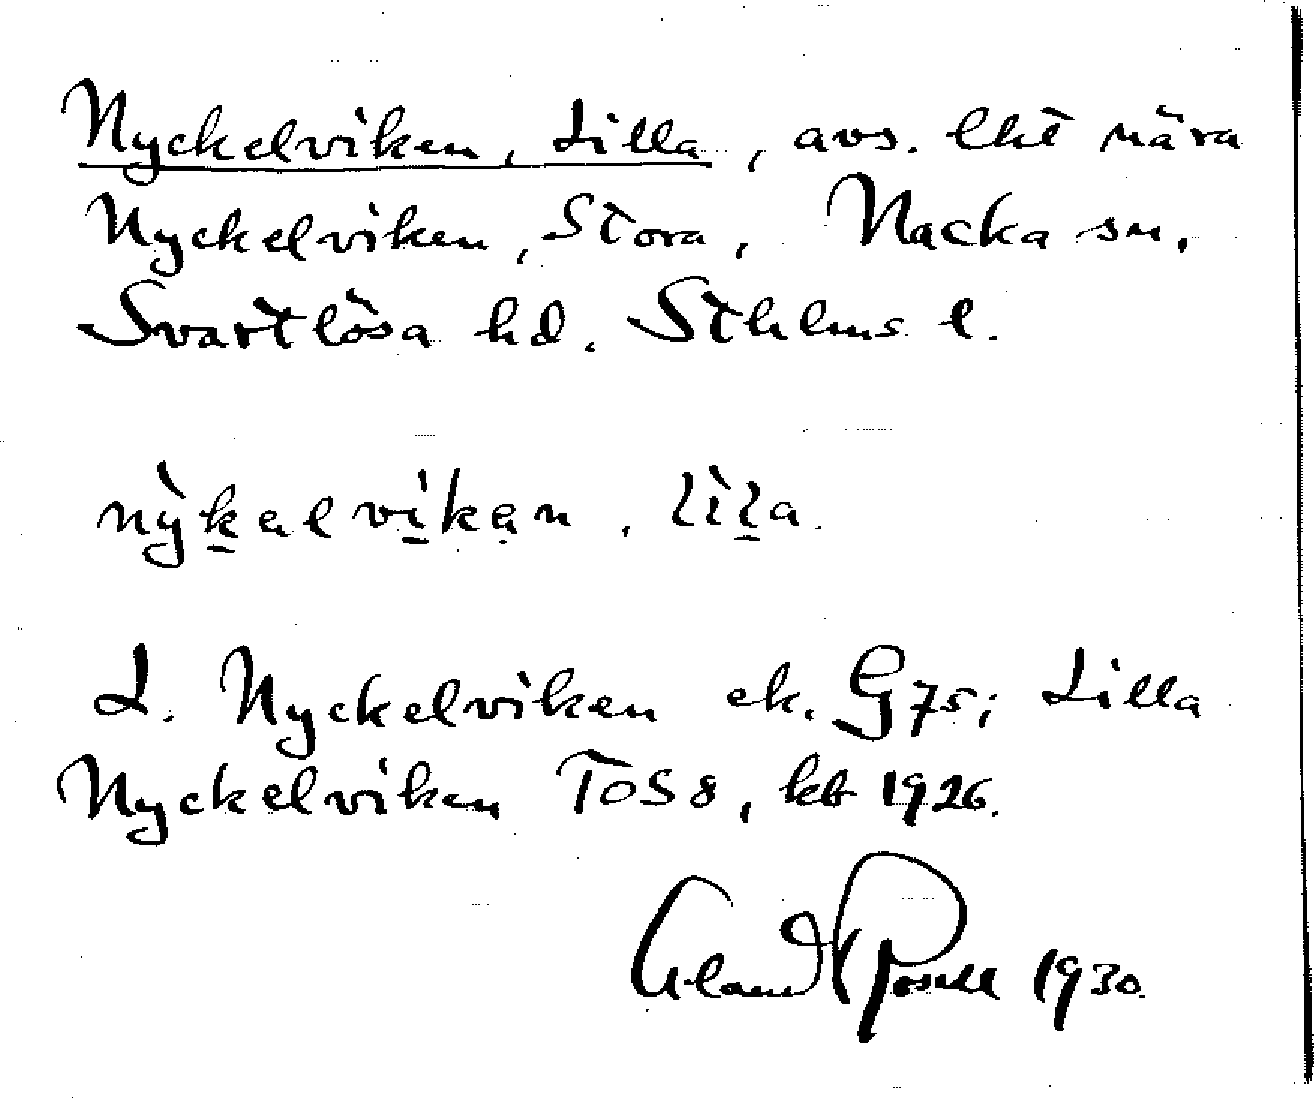 Nyckelviken, Lilla, avs. lht nära
Nyckelviken, Stora, Nacka sn,
Svartlösa hd. Sthlms l.
nỳk̲əlvi̲kən, lìl̲a.
L. Nyckelviken ek. G75; Lilla
Nyckelviken TOS8, kb 1926.
Erland Rosell 1930.